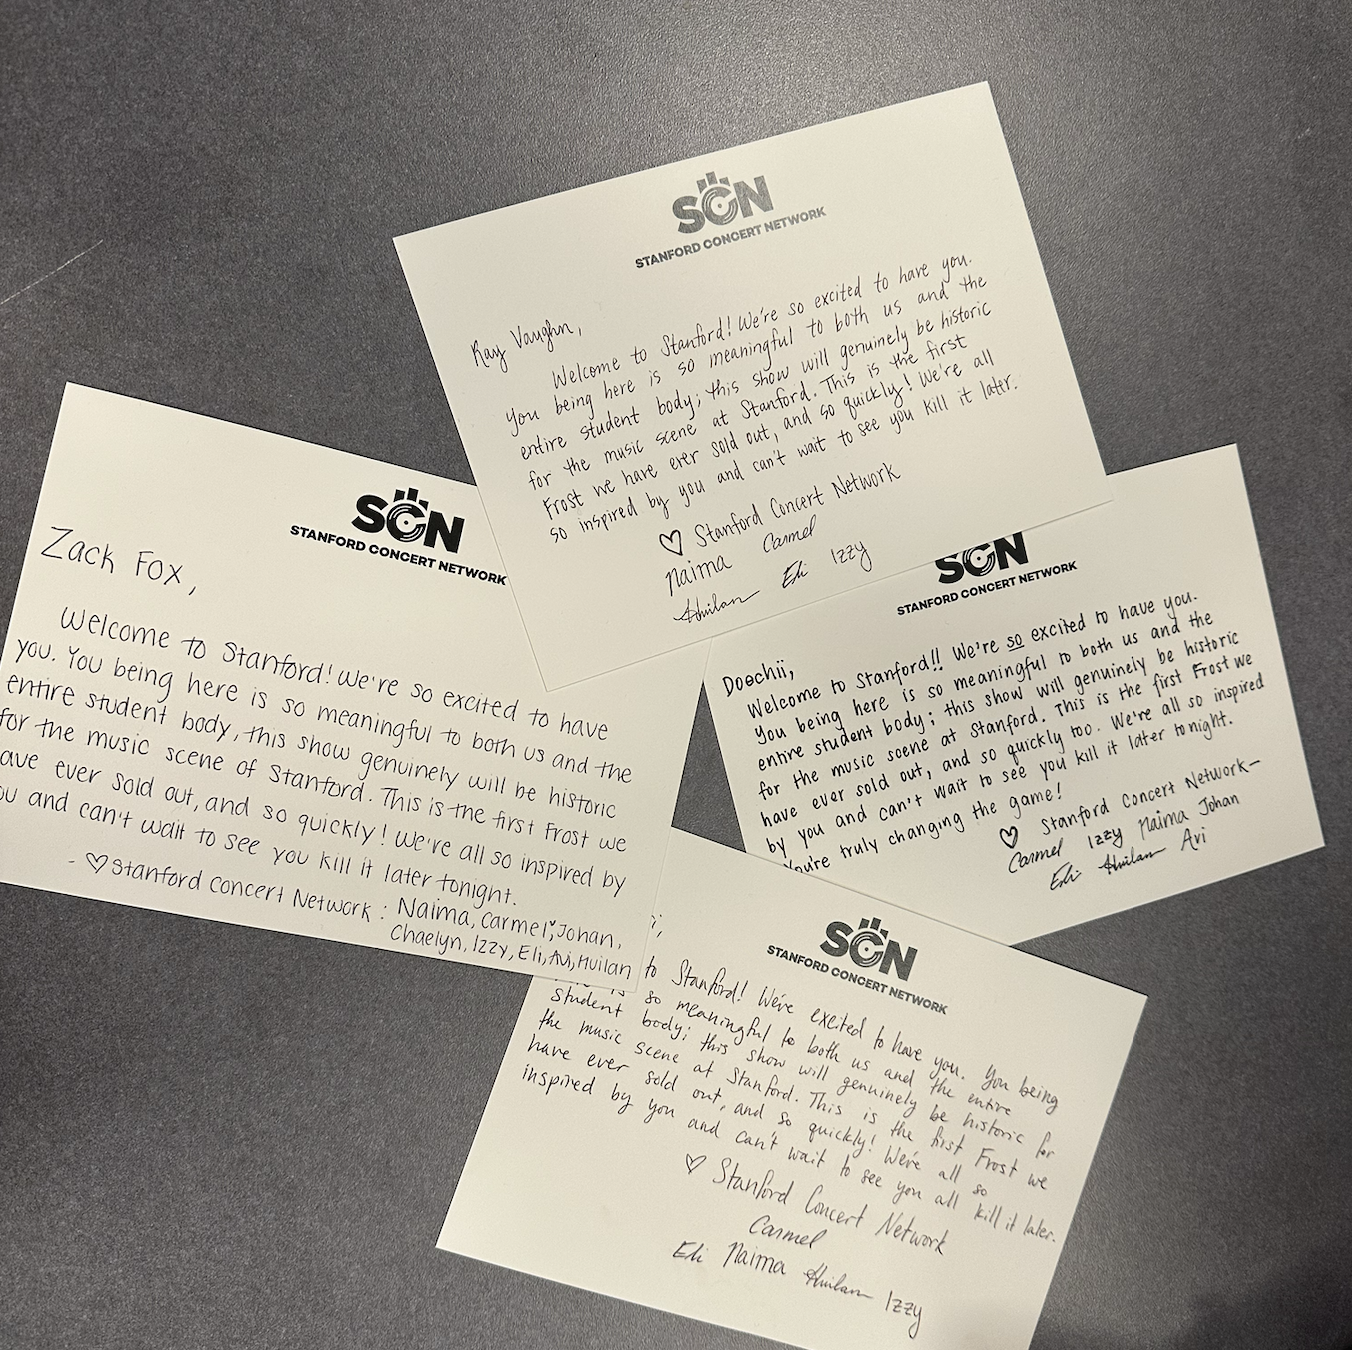 SCN
STANFORD CONCERT NETWORK
Ray Vaughn,
Welcome to Stanford! We're so excited to have you.
You being here is so meaningful to both us and the
entire student body; this show will genuinely be historic
for the music scene at Stanford. This is the first
Frost we have ever sold out, and so quickly! We're all
so inspired by you and can't wait to see you kill it later.
♡ Stanford Concert Network
Naima Carmel
Huilan Eli Izzy
SCN
STANFORD CONCERT NETWORK
Zack Fox,
Welcome to Stanford! We're so excited to have
you. You being here is so meaningful to both us and the
entire student body, this show genuinely will be historic
for the music scene of Stanford. This is the first Frost we
ave ever sold out, and so quickly! We're all so inspired by
ou and can't wait to see you kill it later tonight.
- ♡ Stanford Concert Network: Naima, Carmel, Johan,
Chaelyn, Izzy, Eli, Avi, Huilan
SCN
STANFORD CONCERT NETWORK
Doechii,
Welcome to Stanford!! We're so excited to have you.
You being here is so meaningful to both us and the
entire student body; this show will genuinely be historic
for the music scene at Stanford. This is the first Frost we
have ever sold out, and so quickly too. We're all so inspired
by you and can't wait to see you kill it later tonight.
You're truly changing the game!
♡ Stanford Concert Network-
Carmel Izzy Naima Johan
Eli Huilan Avi
SCN
STANFORD CONCERT NETWORK
i,
to Stanford! We're excited to have you. You being
is so meaningful to both us and the entire
student body; this show will genuinely be historic for
the music scene at Stanford. This is the first Frost we
have ever sold out, and so quickly! We're all so
inspired by you and can't wait to see you all kill it later.
♡ Stanford Concert Network
Carmel
Eli Naima Huilan Izzy